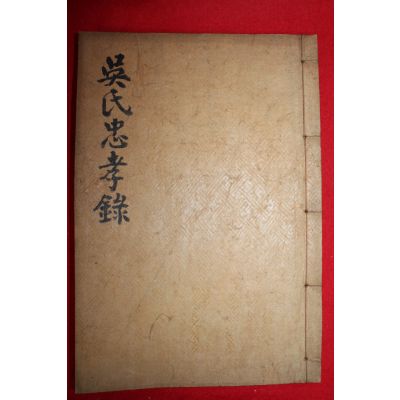 吳氏忠孝錄